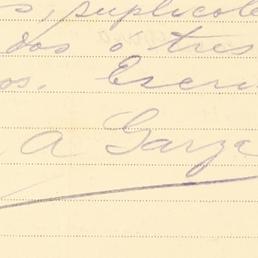 s, suplicole
dos o tres
os. Escri
A Garza